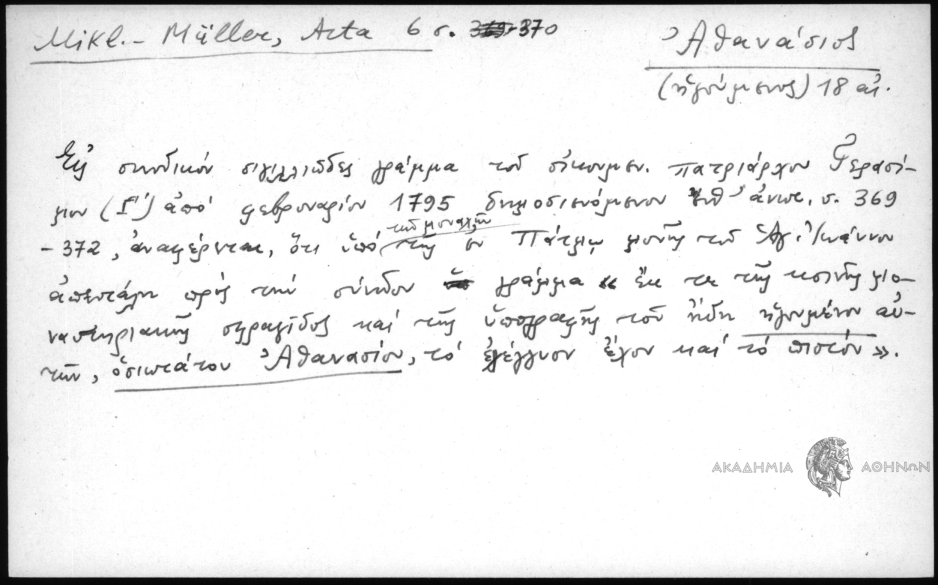 Mikl.- Müller, Acta 6 σ. 370
Ἀθανάσιος
(ἡγούμενος) 18 αἰ.
Εἰς συνοδικόν σιγιλλιῶδες γράμμα τοῦ οἰκουμεν. πατριάρχου Γερασί-
μου (Γ') ἀπό φεβρουαρίου 1795 δημοσιευόμενον ἀνωτ. σ. 369
-372, ἀναφέρεται, ὅτι ὑπό τῶν μοναχῶν τῆς ἐν Πάτμῳ μονῆς τοῦ Ἁγ. Ἰωάννου
ἀπεστάλη πρός τήν σύνοδον γράμμα « ἔκ τε τῆς κοινῆς μο-
ναστηριακῆς σφραγῖδος καί τῆς ὑπογραφῆς τοῦ ἤδη ἡγουμένου αὐ-
τῶν, ὁσιωτάτου Ἀθανασίου, τό ἐχέγγυον ἔχον καί τό πιστόν».
ΑΚΑΔΗΜΙΑ ΑΘΗΝΩΝ